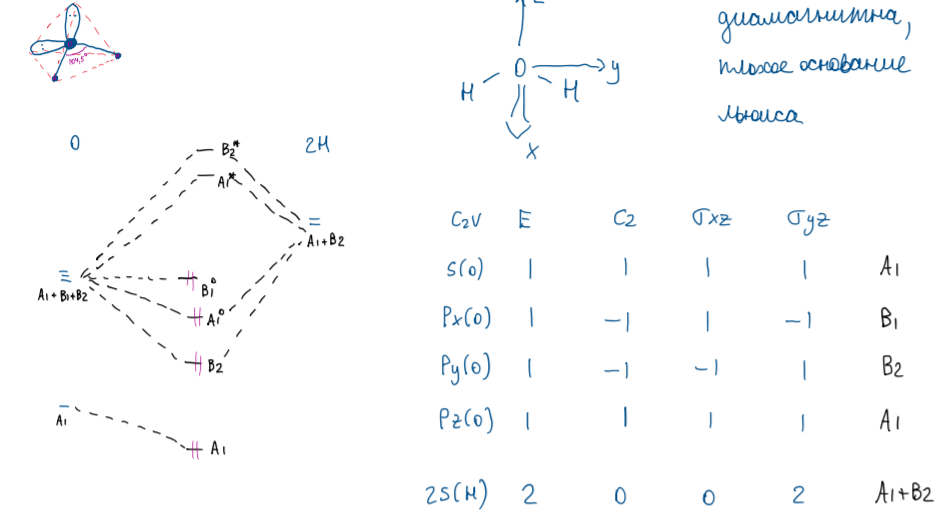 диамагнитна,
плохое основание
льюиса
104,5°
O
y
H
H
x
O
2H
B2*
A1*
A1+B2
A1+B1+B2
B1°
A1°
B2
A1
A1
C2V E C2 σxz σyz
S(O) 1 1 1 1 A1
Px(O) 1 -1 1 -1 B1
Py(O) 1 -1 -1 1 B2
Pz(O) 1 1 1 1 A1
2S(H) 2 0 0 2 A1+B2